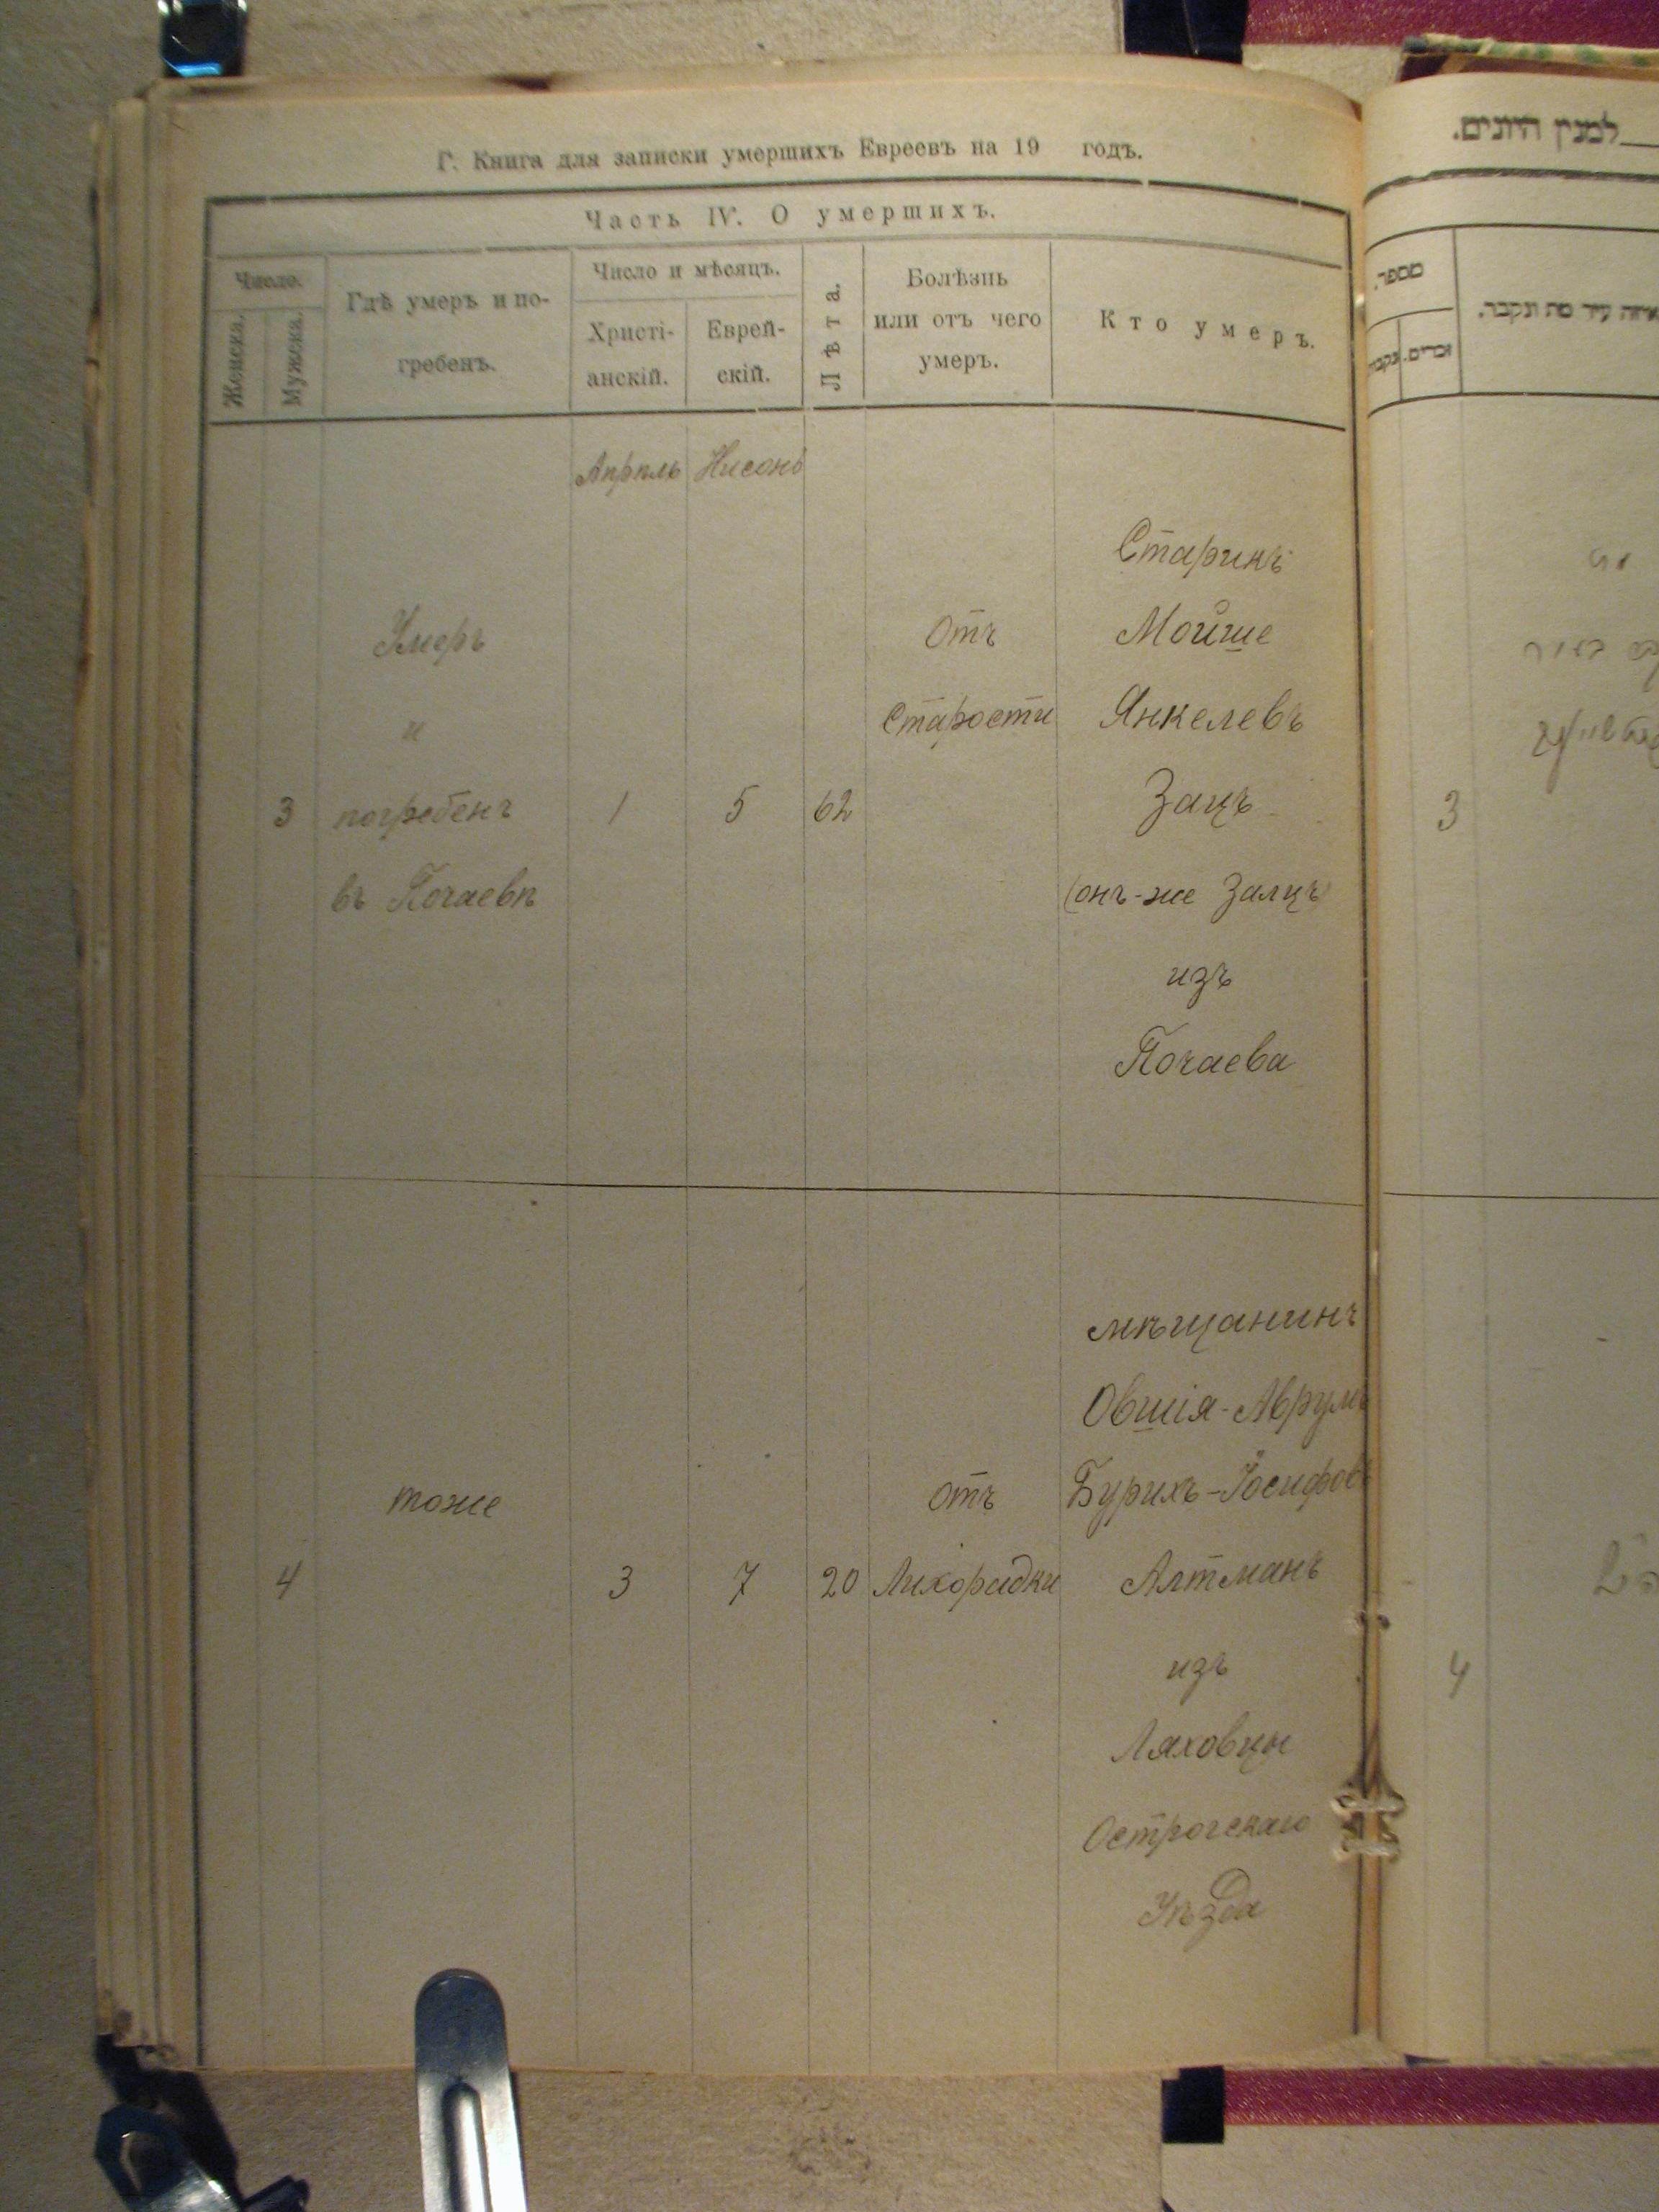 Г. Книга для записки умершихъ Евреевъ на 19 годъ.
Часть IV. О умершихъ.
Число.
Женска.
Мужска.
Гдѣ умеръ и по-
гребенъ.
Число и мѣсяцъ.
Христі-
анскій.
Еврей-
скій.
Лѣта.
Болѣзнь
или отъ чего
умеръ.
Кто умеръ.
Апрѣль Нисонъ
3
Умеръ
и
погребенъ
въ Почаевѣ
1
5
62
Отъ
Старости
Старикъ
Мойше
Янкелевъ
Зацъ
(онъ-же Залцъ)
изъ
Почаева
4
тоже
3
7
20
отъ
Лихорадки
мѣщанинъ
Овшія-Аврумъ
Бурихъ-Іосифовъ
Алтманъ
изъ
Ляховцы
Острогскаго
Уѣзда
למנין היונים.
מספר.
זכרים.
נקבו
איזה עיר מת ונקבר.
3
4